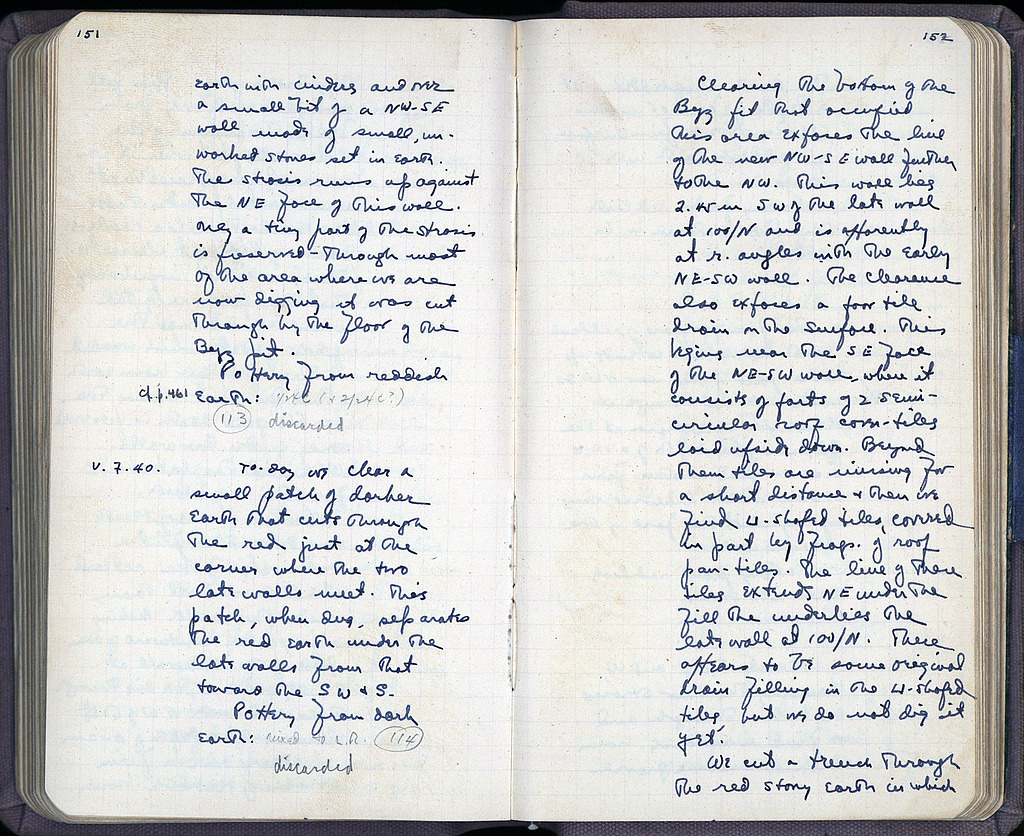 151
earth with cinders and over
a small bit of a NW-SE
wall made of small, un-
worked stones set in earth.
The strosis runs up against
the NE face of this wall.
Only a tiny part of the strosis
is preserved - through most
of the area where we are
now digging it was cut
through by the floor of the
Byz pit.
Pottery from reddish
cf. p. 461 Earth:
(113) discarded
V. 7. 40. To-day we clear a
small patch of darker
earth that cuts through
the red just at the
corner where the two
late walls meet. This
patch, when dug, separates
the red earth under the
late walls from that
toward the SW & S.
Pottery from dark
earth: mixed to L.R. (114)
discarded
152
Clearing the bottom of the
Byz pit that occupied
this area exposes the line
of the new NW-SE wall further
to the NW. This wall lies
2.45 m SW of the late wall
at 100/N and is apparently
at r. angles with the early
NE-SW wall. The clearance
also exposes a poor tile
drain on the surface. This
begins near the SE face
of the NE-SW wall, where it
consists of parts of 2 semi-
circular roof cover-tiles
laid upside down. Beyond
them tiles are missing for
a short distance & then we
find U-shaped tiles, covered
in part by frags. of roof
pan-tiles. The line of these
tiles extends NE under the
fill the underlies the
late wall at 100/N. There
appears to be some original
drain filling in the U-shaped
tiles, but we do not dig it
yet.
We cut a trench through
the red stony earth in which